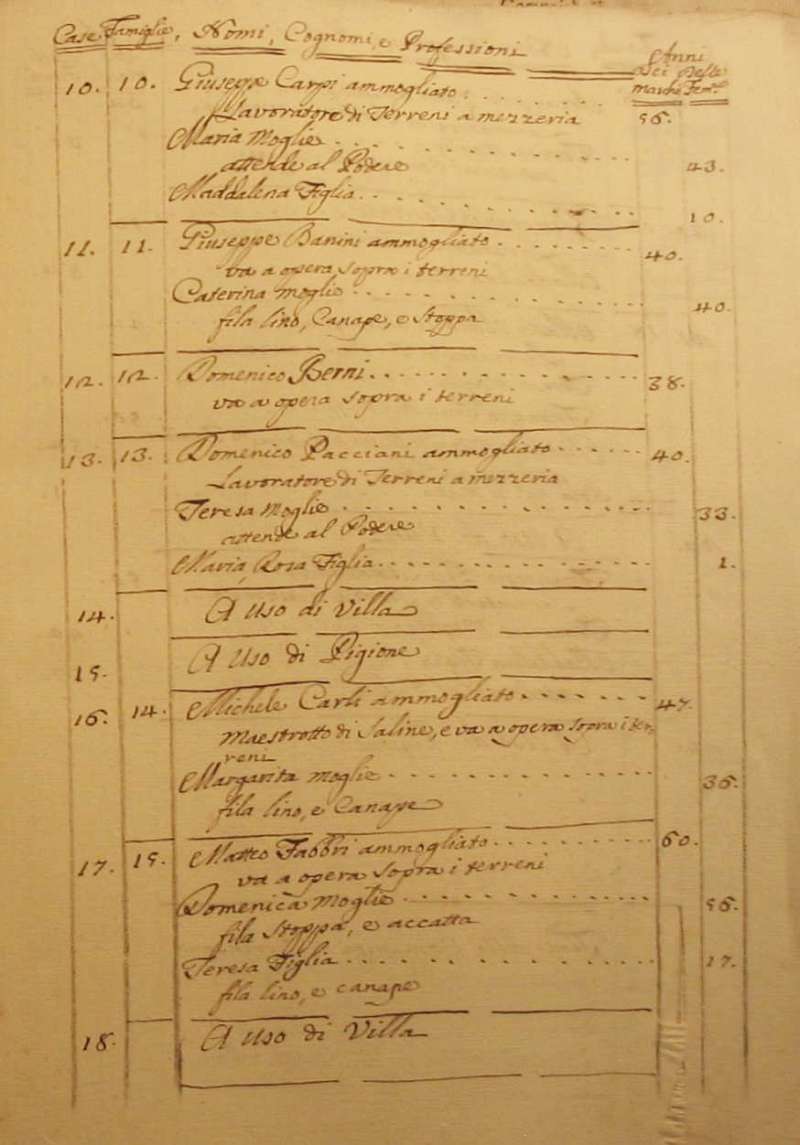 Case Famiglie, Nomi, Cognomi, e Professioni
Anni
dei delle
Maschi Fem.e
10. 10. Giuseppe Carpi ammogliato
Lavoratore di Terreni a mezzeria 56.
Maria Moglie
attende al Podere 43.
Maddalena Figlia 10.
11. 11. Giuseppe Banini ammogliato 40.
va a opera sopra i terreni
Caterina moglie 40.
fila lino, Canape, e Stoppa
12. 12. Domenico Berni 38.
va a opera sopra i terreni
13. 13. Domenico Pacciani ammogliato 40.
Lavoratore di Terreni a mezzeria
Teresa Moglie 33.
attende al Podere
Maria Rosa Figlia 1.
14. A Uso di Villa
15. A Uso di Pigione
16. 14. Michele Carli ammogliato 47.
Maestrotto di Saline, e va a opera sopra i ter,
reni
Margarita moglie 36.
fila lino, e Canape
17. 15. Matteo Fabbri ammogliato 60.
va a opera sopra i terreni
Domenica Moglie 56.
fila Stoppa, e accatta
Teresa Figlia 17.
fila lino, e canape
18. A Uso di Villa